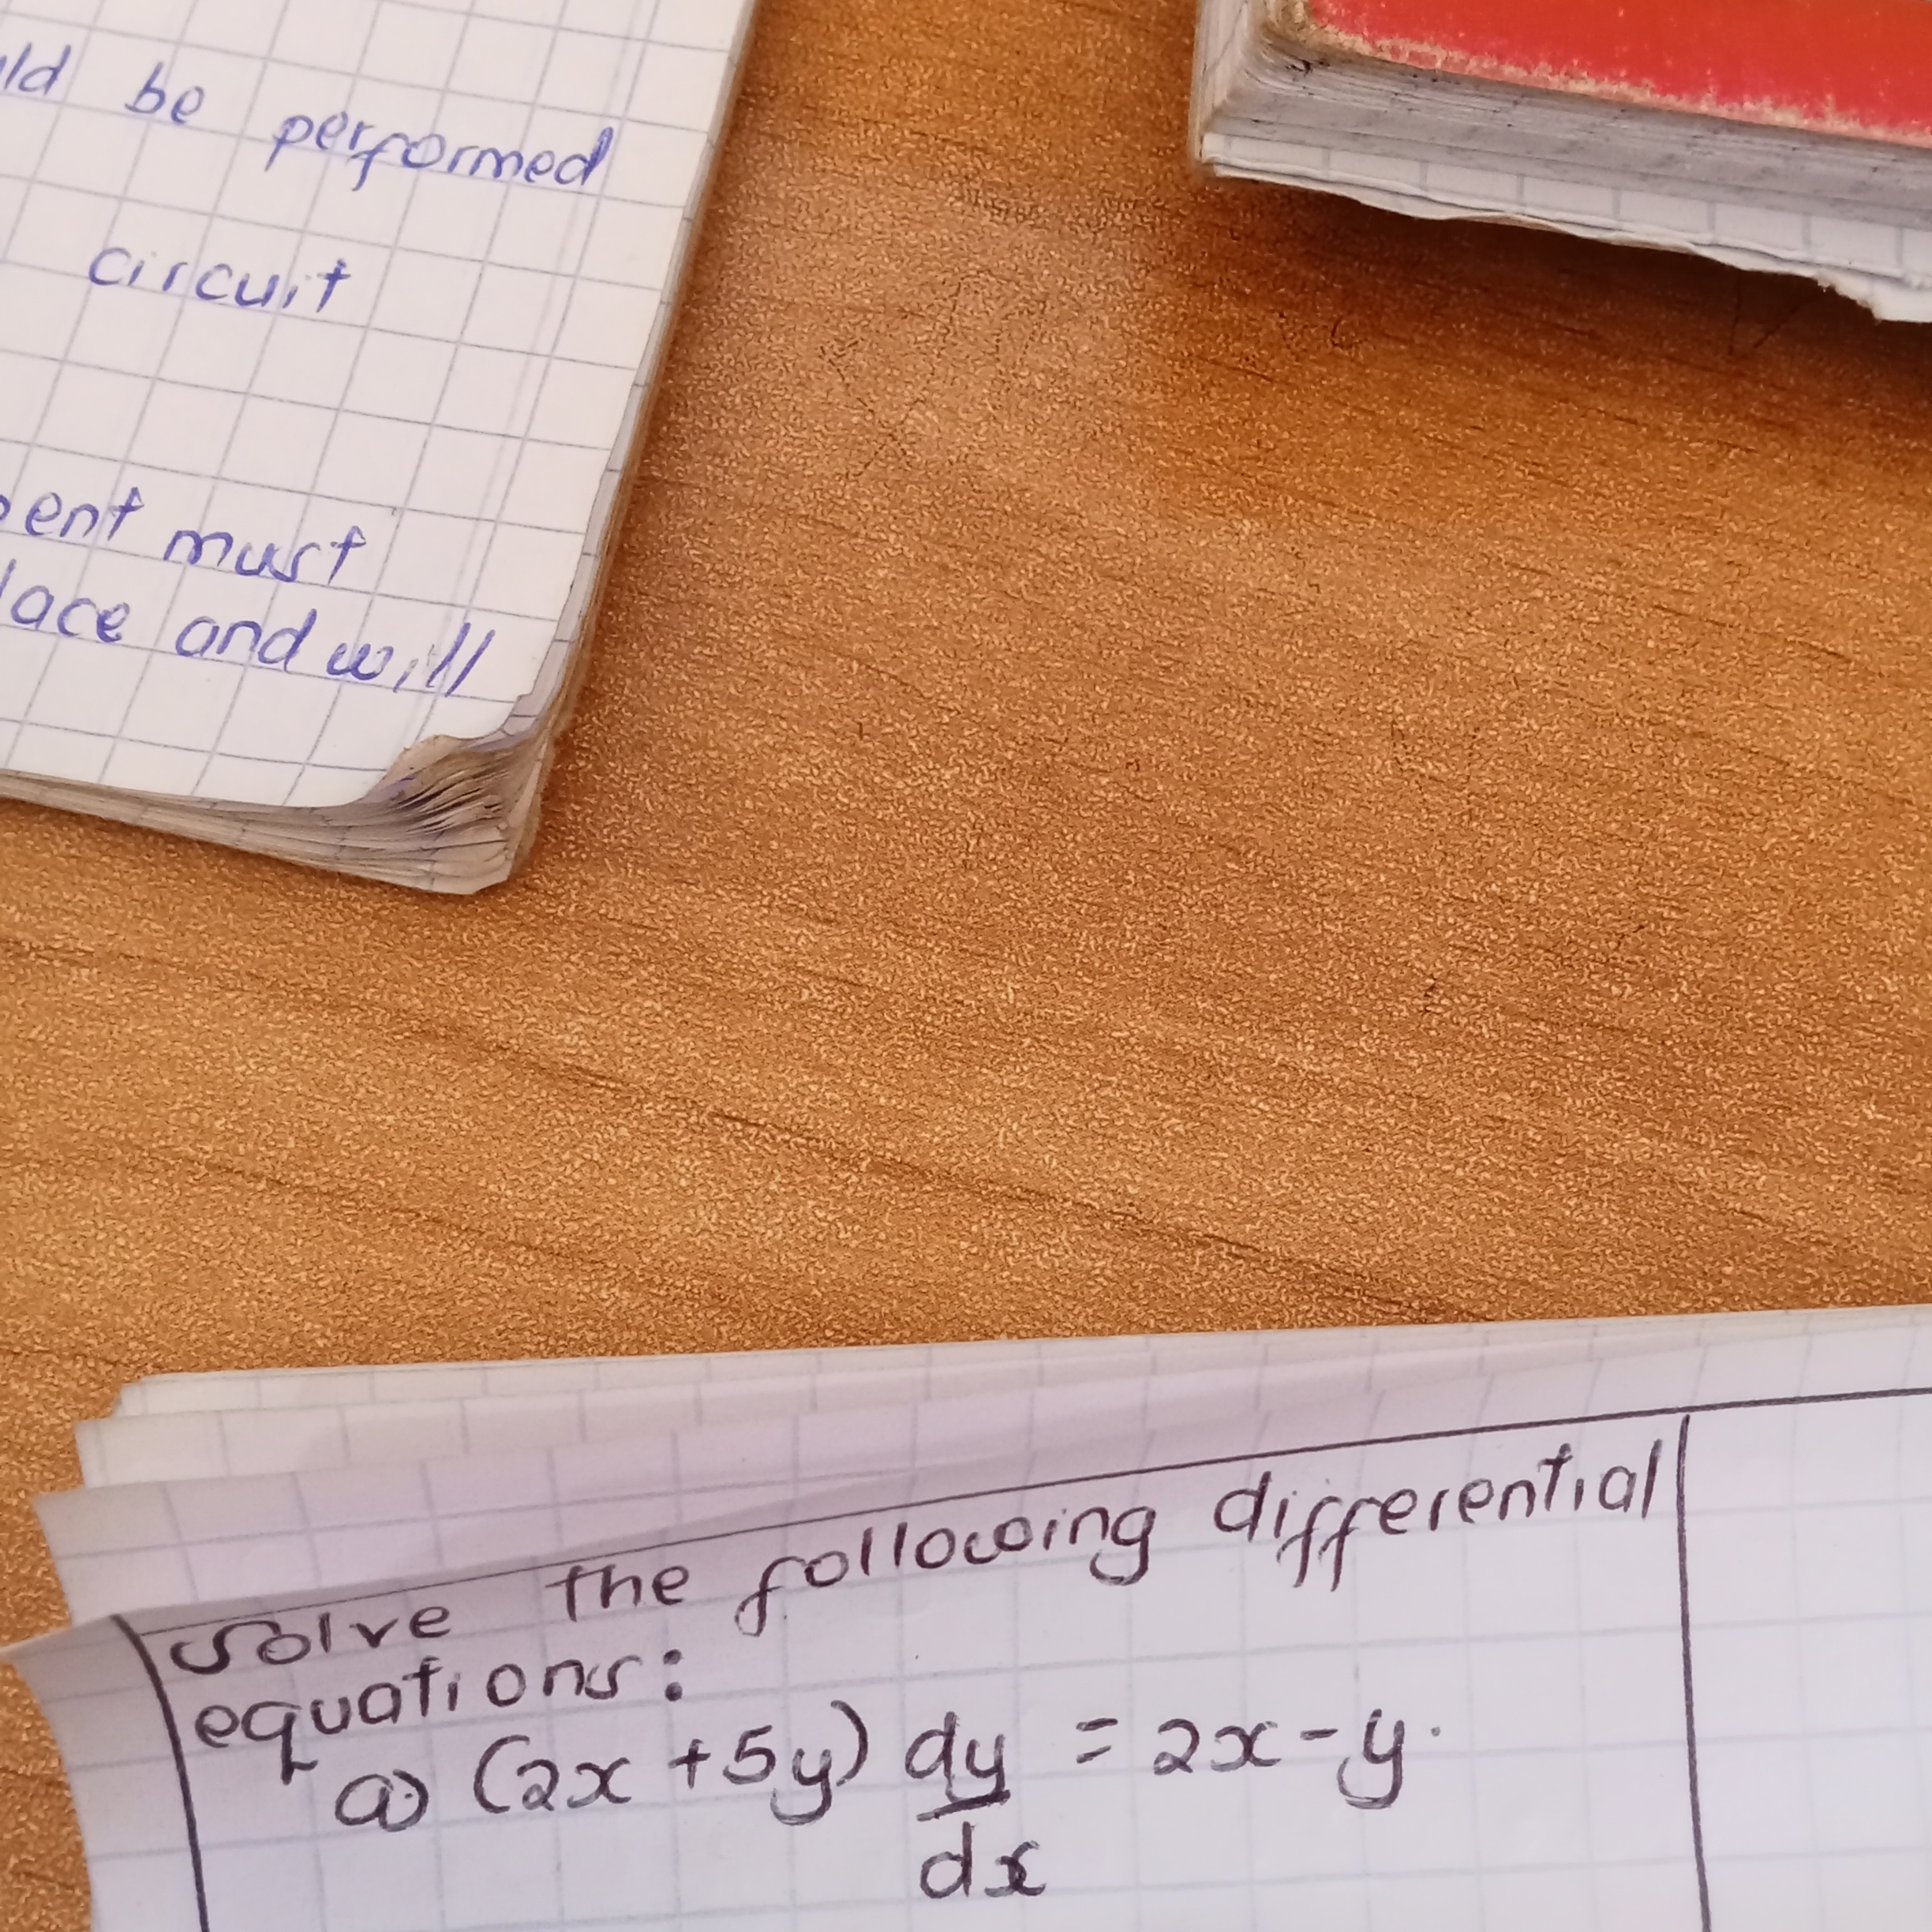 be performed
circuit
must
and will
Solve the following differential
equations:
a) (2x + 5y) dy/dx = 2x - y.